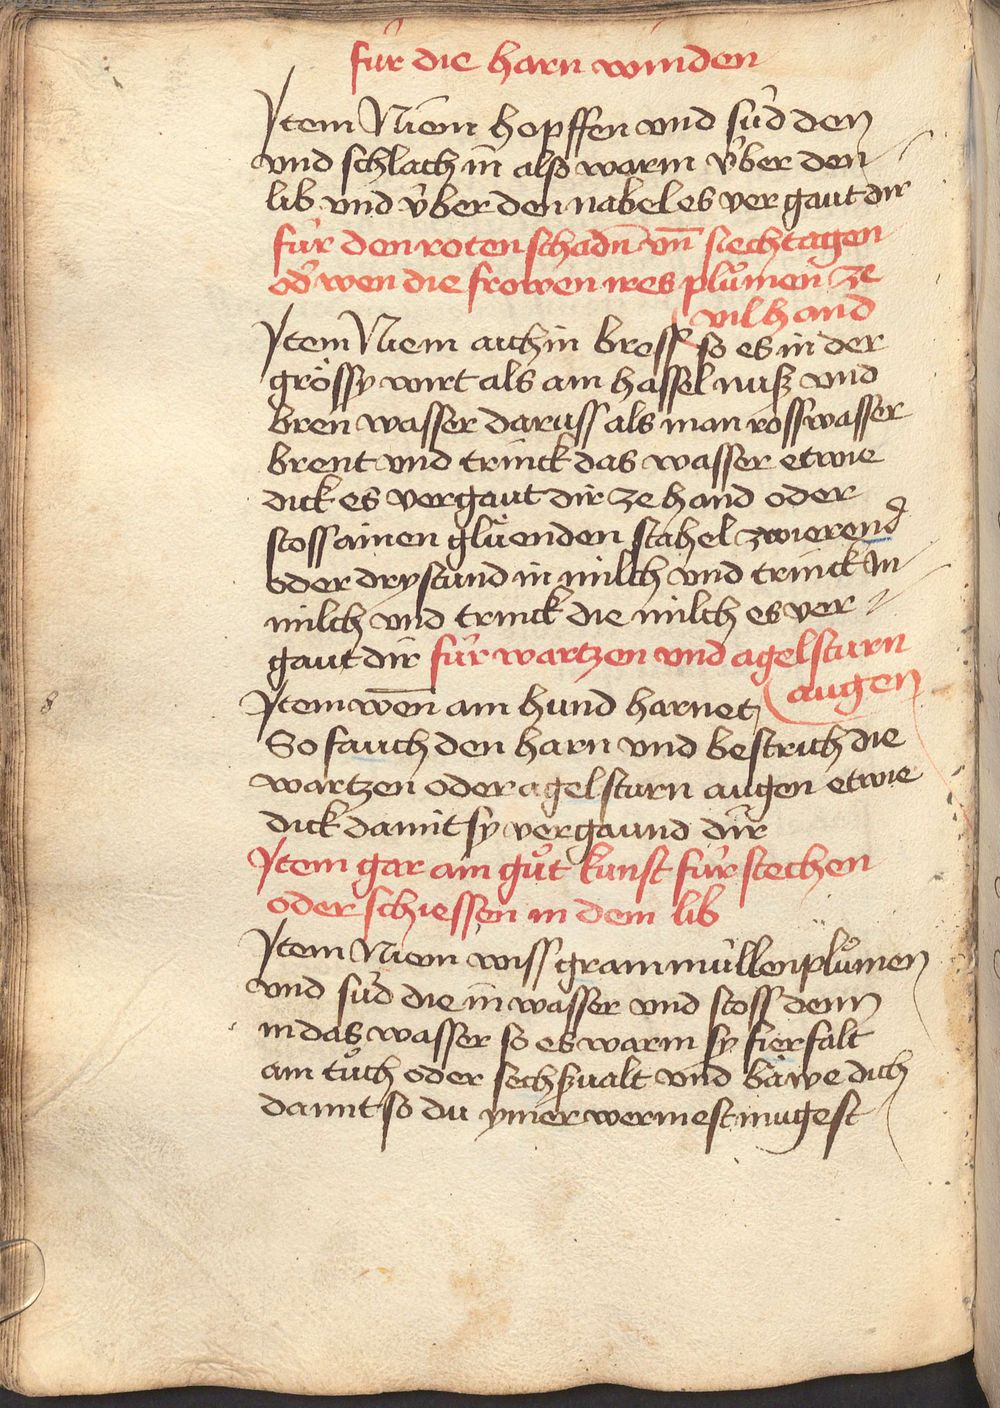 für die harn winden
Item Niem hopffen vnd süd den
vnd schlach in also warm v̂ber den
lib vnd v̂ber den nabel es vergaut dir
für den roten schadn̄ vn̄ siechtagen
od̛ wen die frowen ires plůmen ze
vil hand
Item Niem aichin bross so es in der
grössy wirt als ain hassel nuß vnd
bren wasser daruss als man rosswasser
brent vnd trinck das wasser etwie
dick es vergaut dir ze hand oder
stoss ainen glüenden stahel zwierend
oder drystund in milch vnd trinck in
milch vnd trinck die milch es ver
gaut dir für wartzen vnd agelsturn
augen
Item wen̄ ain hund harnet
So fauch den harn vnd bestrich die
wartzen oder agelsturn augen etwie
dick damit sy vergaund dir
Item gar ain gůt kunst für stechen
oder schiessen in dem lib
Item Niem wiss grammüllenplůmen
vnd süd die in wasser vnd stoss denn
in das wasser so es warm sy fierfalt
ain tůch oder sechßualt vnd bäwe dich
damit so du ymer wermest mugest
8